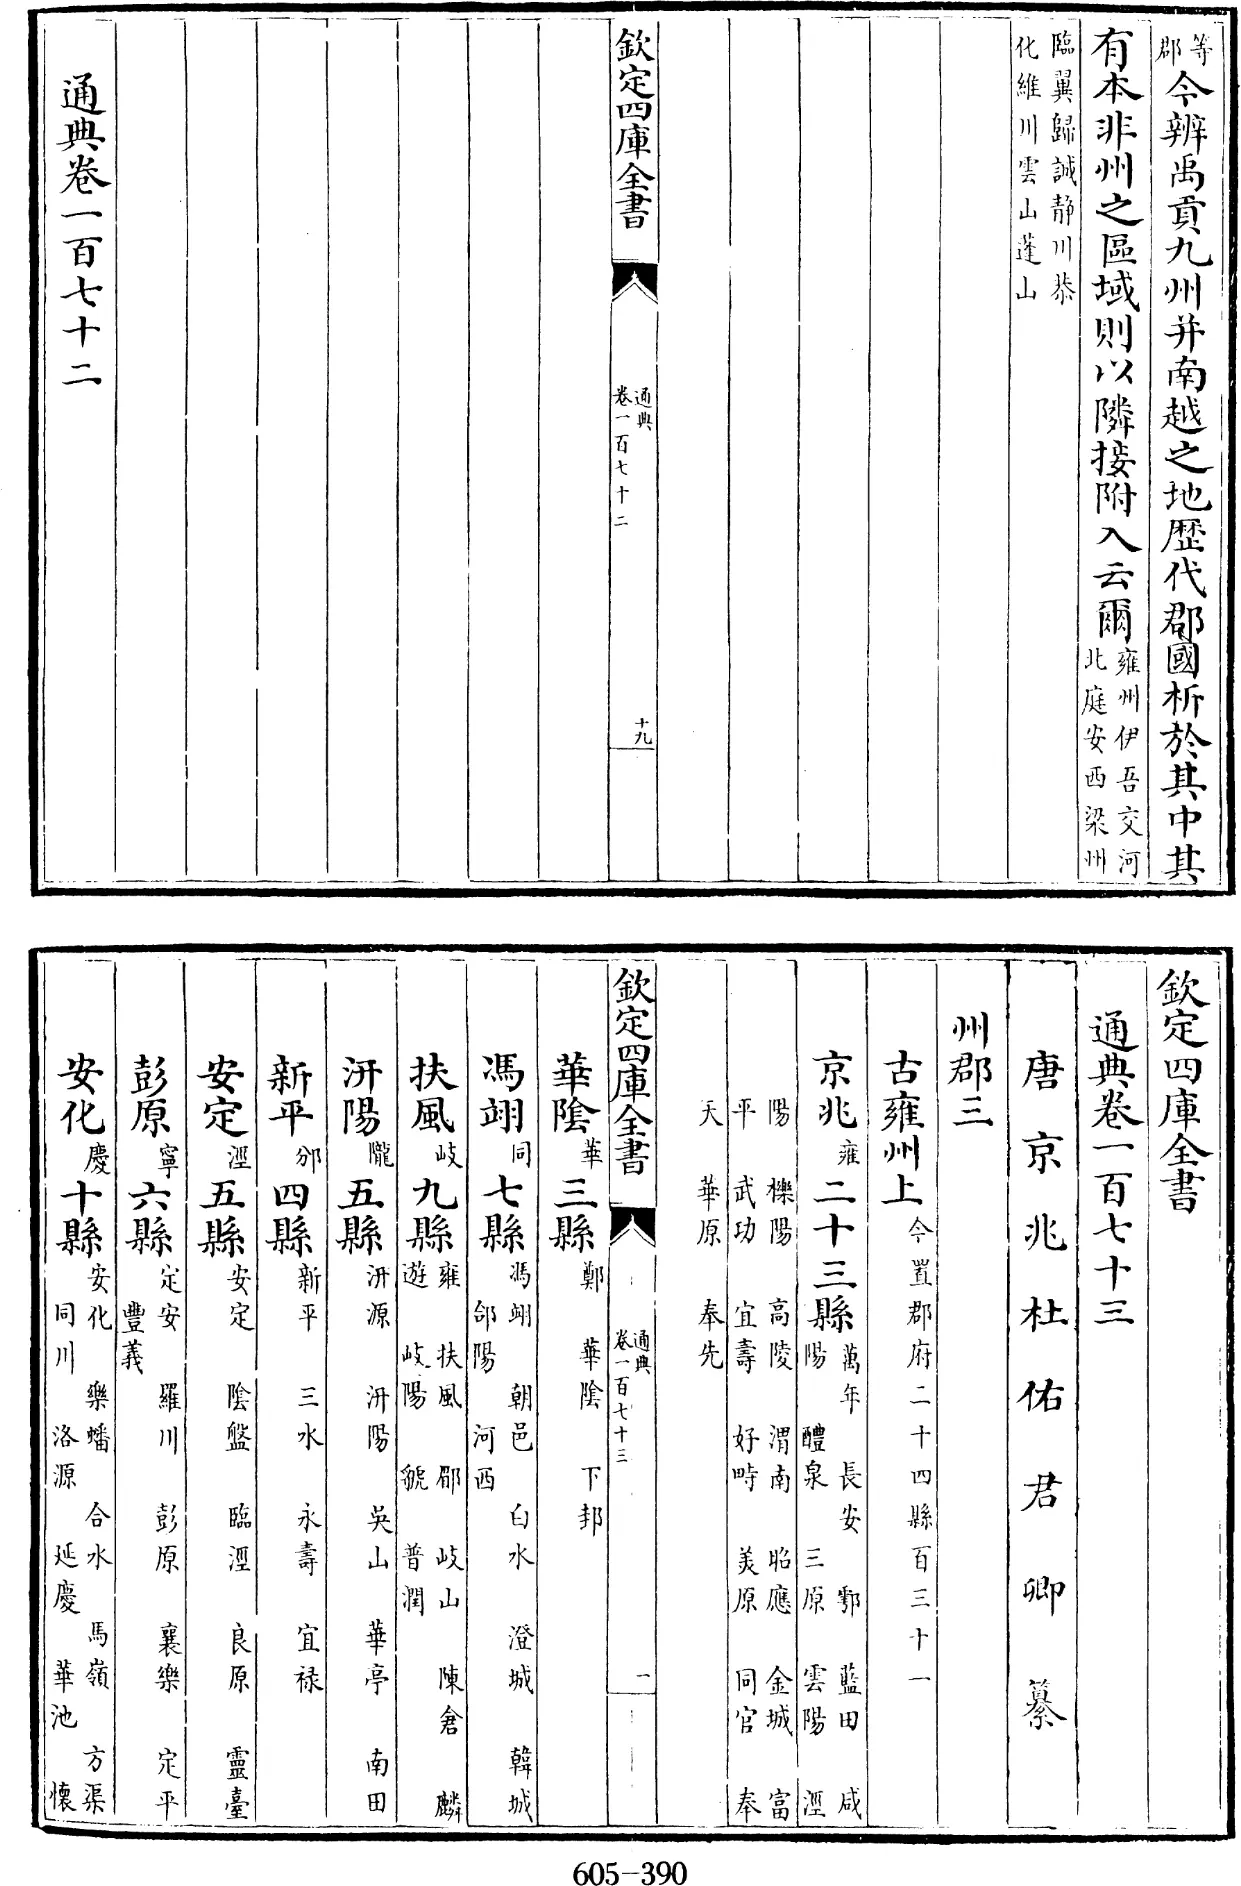 等郡今辨禹貢九州并南越之地歷代郡國析於其中其
有本非州之區域則以隣接附入云爾雍州伊吾交河北庭安西梁州
臨翼歸誠静川恭化維川雲山蓬山
欽定四庫全書 通典卷一百七十二 十九
通典卷一百七十二
欽定四庫全書
通典卷一百七十三
唐京兆杜佑君卿纂
州郡三
古雍州上今置郡府二十四縣百三十一
京兆雍二十三縣萬年 長安 鄠 藍田 咸陽 醴泉 三原 雲陽 涇
陽 櫟陽 高陵 渭南 昭應 金城 富平 武功 宜壽 好畤 美原 同官 奉
天 華原 奉先
欽定四庫全書 通典卷一百七十三 一
華陰華三縣鄭 華陰 下邽
馮翊同七縣馮翊 朝邑 白水 澄城 韓城 郃陽 河西
扶風岐九縣雍 扶風 郿 岐山 陳倉 麟遊 岐陽 虢 普潤
汧陽隴五縣汧源 汧陽 吳山 華亭 南田
新平邠四縣新平 三水 永壽 宜禄
安定涇五縣安定 陰盤 臨涇 良原 靈臺
彭原寧六縣定安 羅川 彭原 襄樂 定平 豐義
安化慶十縣安化 樂蟠 合水 馬嶺 方渠 同川 洛源 延慶 華池 懷
605-390